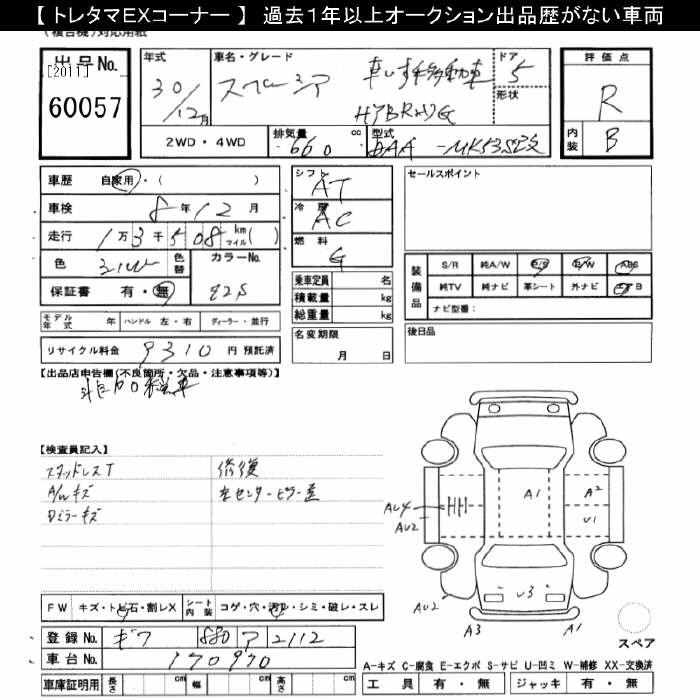 【 トレタマEXコーナー 】 過去１年以上オークション出品歴がない車両
(複合機)対応用紙
出品No. [2011] 60057
年式 30/12月
車名・グレード スペーシア 車いす移動車 HYBRID G
ドア 5
形状
評価点 R
内装 B
2WD・4WD
排気量 660 cc
型式 DAA-MK53S改
車歴 自家用・( )
車検 8年12月
走行 1万3千508 km マイル( )
色 シルバー 色替
カラーNo. Z2S
保証書 有・無
シフト AT
冷房 AC
燃料 G
乗車定員 名
積載量 kg
総重量 kg
名変期限 月 日
セールスポイント
装備品 S/R 純A/W P/S P/W ABS
純TV 純ナビ 革シート 外ナビ エアB
ナビ型番：
後日品
モデル年式 年 ハンドル 左・右 ディーラー・並行
リサイクル料金 9310 円 預託済
【出品店申告欄(不良箇所・欠品・注意事項等)】
【検査員記入】
スタッドレスT
A/Wキズ
Dミラーキズ
修復
左センターピラー歪
AU4
AU2
A1
A2
U1
U3
AU2
A3
A1
スペア
FW キズ・トビ石・割レX
シート内装 コゲ・穴・汚レ・シミ・破レ・スレ
登録No. ギフ 880 ア 2112
車台No. 170970
車庫証明用 長さ cm 幅 cm 高さ cm
A-キズ C-腐食 E-エクボ S-サビ U-凹ミ W-補修 XX-交換済
工具 有・無 ジャッキ 有・無